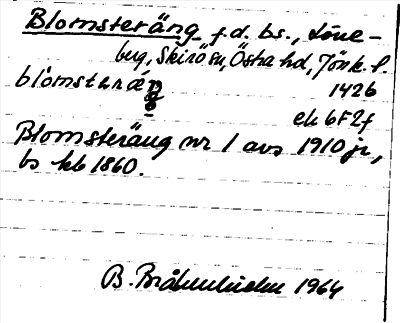 Blomsteräng f.d. bs., Löne-
bug, Skirö sn, Östra hd, Jönk. l.
blomstəräŋ 1426
ek 6F2f
Blomsteräng nr 1 avs 1910 jr,
bs hb 1860.
B. 1964